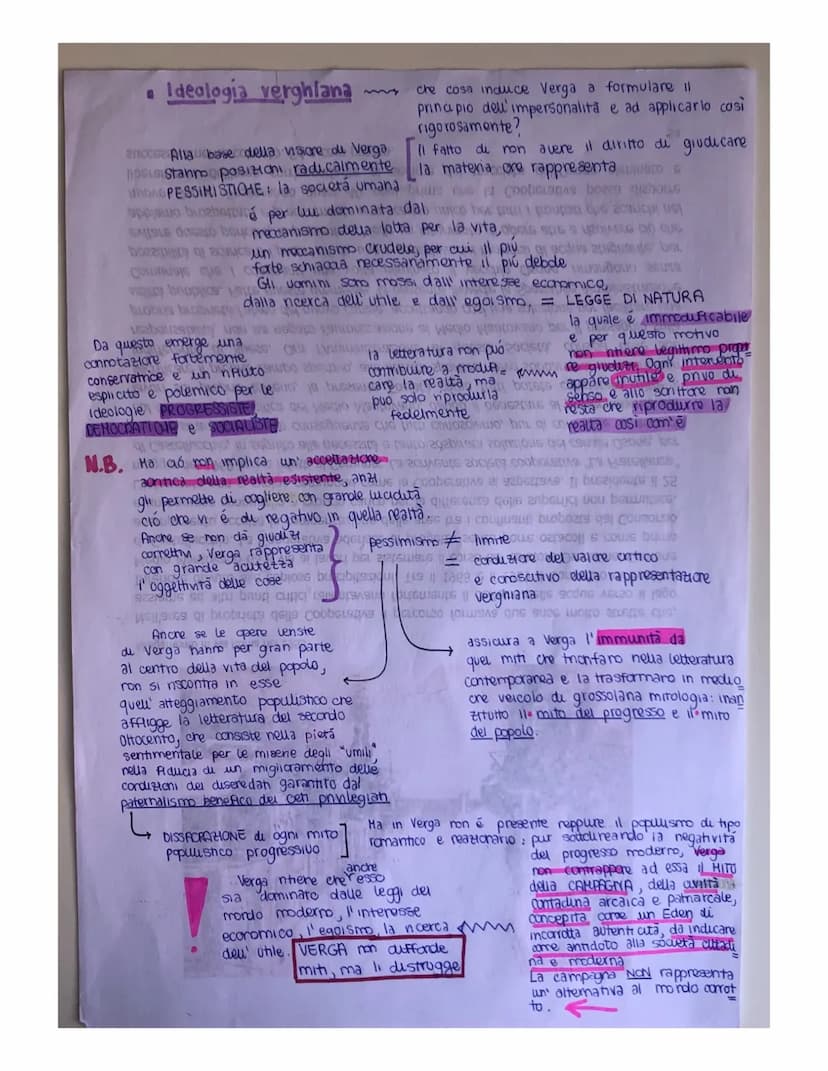 • Ideologia verghiana
che cosa induce Verga a formulare il
principio dell'impersonalità e ad applicarlo così
rigorosamente?
Il fatto di non avere il diritto di giudicare
la materia che rappresenta
Alla base della visione di Verga
stanno posizioni radicalmente
PESSIMISTICHE: la società umana
é per lui dominata dal
meccanismo della lotta per la vita,
un meccanismo crudele, per cui il più
forte schiaccia necessariamente il più debole
Gli uomini sono mossi dall'interesse economico,
dalla ricerca dell'utile e dall'egoismo, = LEGGE DI NATURA
la quale é immodificabile
e per questo motivo
non ritiene legittimo propor
re giudizi. Ogni intervento
appare inutile e privo di
senso e allo scrittore non
resta che riprodurre la
realtà così com'è
la letteratura non può
contribuire a modifi=
care la realtà, ma
può solo riprodurla
fedelmente
Da questo emerge una
connotazione fortemente
conservatrice e un rifiuto
esplicito e polemico per le
ideologie PROGRESSISTE,
DEMOCRATICHE e SOCIALISTE
N.B. Ma ciò non implica un'accettazione
acritica della realtà esistente, anzi
gli permette di cogliere con grande lucidità
ciò che vi é di negativo in quella realtà.
Anche se non dà giudizi
correttivi, Verga rappresenta
con grande acutezza
l'oggettività delle cose
pessimismo ≠ limite
= condizione del valore critico
e conoscitivo della rappresentazione
verghiana
assicura a Verga l'immunità da
quei miti che trionfano nella letteratura
contemporanea e la trasformano in medio
cre veicolo di grossolana mitologia: inan
zitutto il mito del progresso e il mito
del popolo.
Anche se le opere veriste
di Verga hanno per gran parte
al centro della vita del popolo,
non si riscontra in esse
quell'atteggiamento populistico che
affligge la letteratura del secondo
Ottocento, che consiste nella pietà
sentimentale per le miserie degli "umili",
nella fiducia di un miglioramento delle
condizioni dei diseredati garantito dal
paternalismo benefico dei ceti privilegiati
DISSACRAZIONE di ogni mito
populistico progressivo
Ma in Verga non é presente neppure il populismo di tipo
romantico e reazionario: pur sottolineando la negatività
del progresso moderno, Verga
non contrappone ad essa il MITO
della CAMPAGNA, della civiltà
contadina arcaica e patriarcale,
concepita come un Eden di
incorrotta autenticità, da indicare
come antidoto alla società cittadi
na e moderna
La campagna NON rappresenta
un'alternativa al mondo corrot
to.
! Verga ritiene che anche esso
sia dominato dalle leggi del
mondo moderno, l'interesse
economico, l'egoismo, la ricerca
dell'utile.
VERGA non diffonde
miti, ma li distrugge